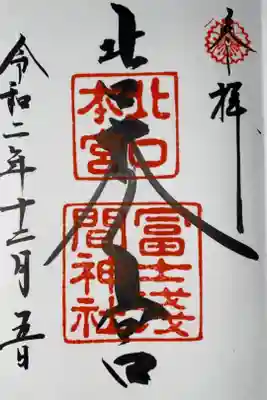 奉拝
北口
北口
本宮
冨士淺
間神社
令和二年十二月五日